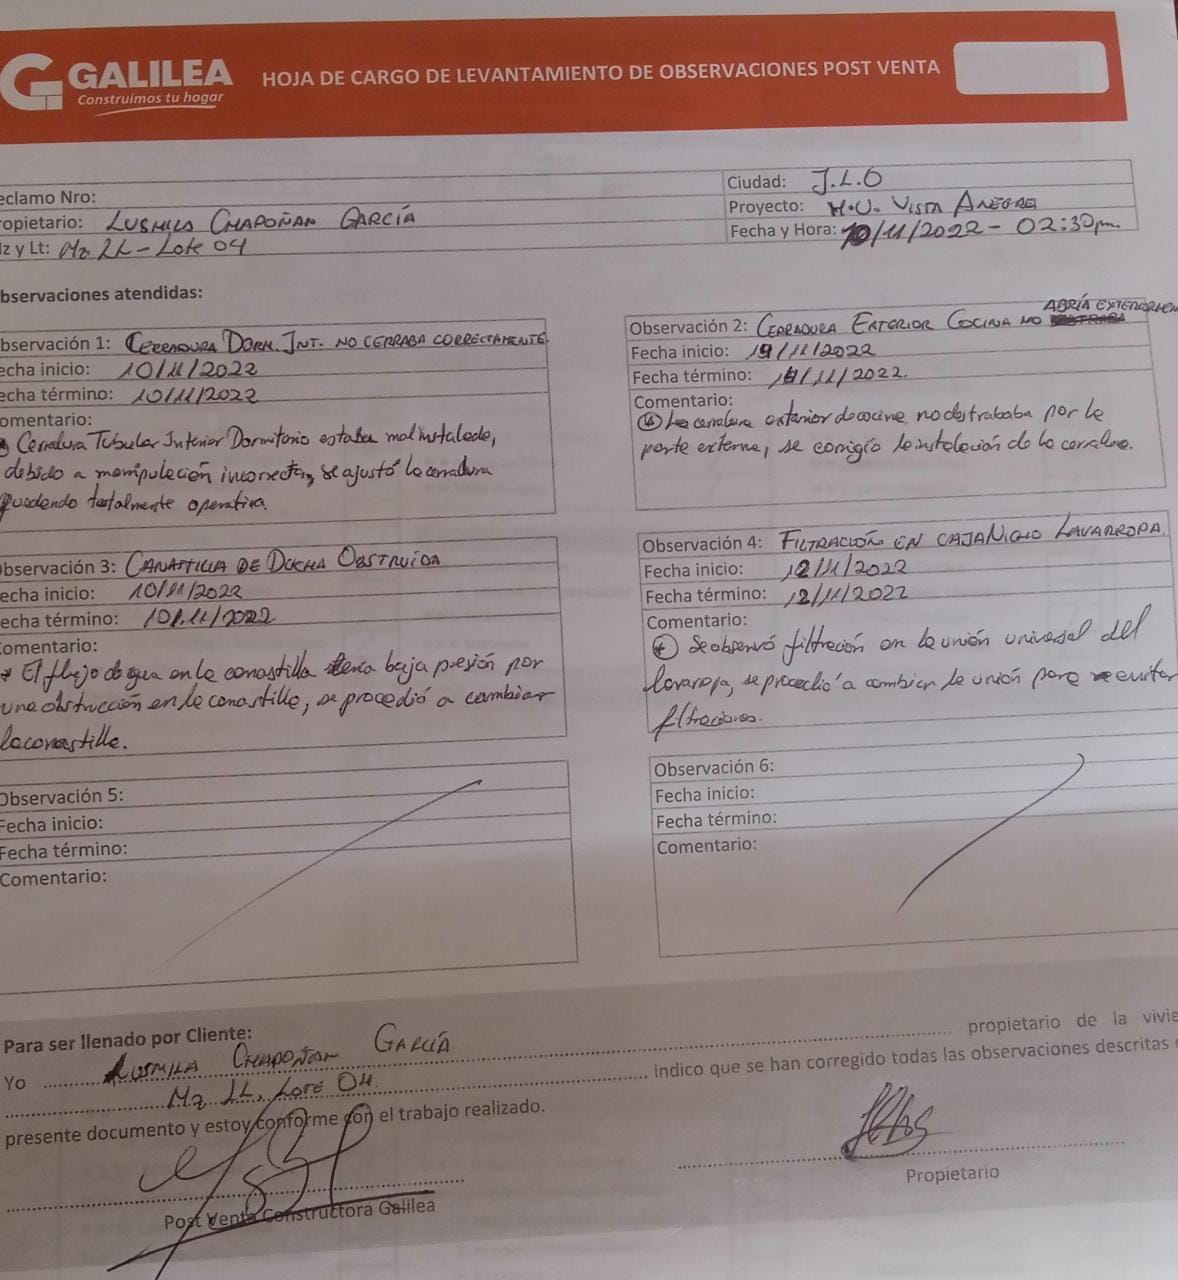 GALILEA
Construimos tu hogar
HOJA DE CARGO DE LEVANTAMIENTO DE OBSERVACIONES POST VENTA
eclamo Nro:
ropietario: LUSMILA CHAPOÑAN GARCÍA
z y Lt: Mz LL - Lote 04
Ciudad: J.L.O
Proyecto: H.U. VISTA ALEGRE
Fecha y Hora: 10/11/2022 - 02:30pm.
bservaciones atendidas:
bservación 1: CERRADURA DORM. INT. NO CERRABA CORRECTAMENTE
echa inicio: 10/11/2022
echa término: 10/11/2022
omentario:
Cerradura Tubular Interior Dormitorio estaba mal instalada,
debido a manipulación incorrecta, se ajustó la cerradura
quedando totalmente operativa.
Observación 2: CERRADURA EXTERIOR COCINA NO ABRÍA EXTERIORMEN
Fecha inicio: /11/2022
Fecha término: /11/2022.
Comentario:
La cerradura exterior de cocina no destrababa por la
parte externa, se corrigió la instalación de la cerradura.
bservación 3: CANASTILLA DE DUCHA OBSTRUIDA
echa inicio: 10/11/2022
echa término: 10/11/2022
omentario:
* El flujo de agua en la canastilla tenía baja presión por
una obstrucción en la canastilla, se procedió a cambiar
la canastilla.
Observación 4: FILTRACIÓN EN CAJA NICHO LAVARROPA.
Fecha inicio: 12/11/2022
Fecha término: 12/11/2022
Comentario:
Se observó filtración en la unión universal del
lavaropa, se procedió a cambiar la unión para evitar
filtraciones.
Observación 5:
Fecha inicio:
Fecha término:
Comentario:
Observación 6:
Fecha inicio:
Fecha término:
Comentario:
Para ser llenado por Cliente:
Yo LUSMILA CHAPOÑAN GARCÍA propietario de la vivie
Mz LL, LOTE 04 indico que se han corregido todas las observaciones descritas
presente documento y estoy conforme con el trabajo realizado.
Post Venta Constructora Galilea
Propietario